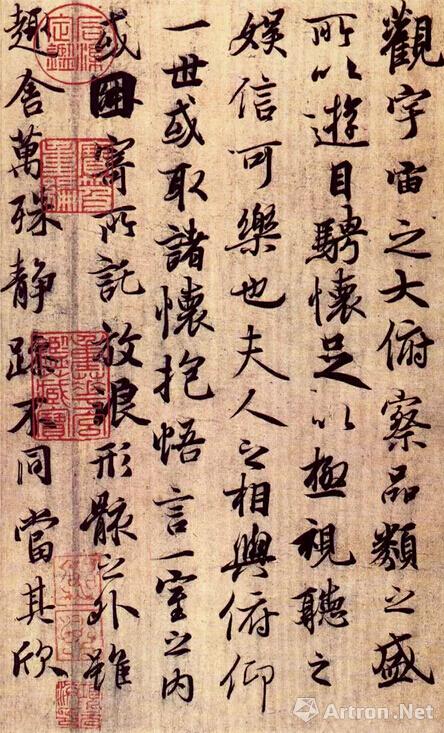 觀宇宙之大俯察品類之盛
所以遊目騁懷足以極視聽之
娛信可樂也夫人之相與俯仰
一世或取諸懷抱悟言一室之内
或因寄所託放浪形骸之外雖
趣舍萬殊静躁不同當其欣
Artron.Net 雅昌